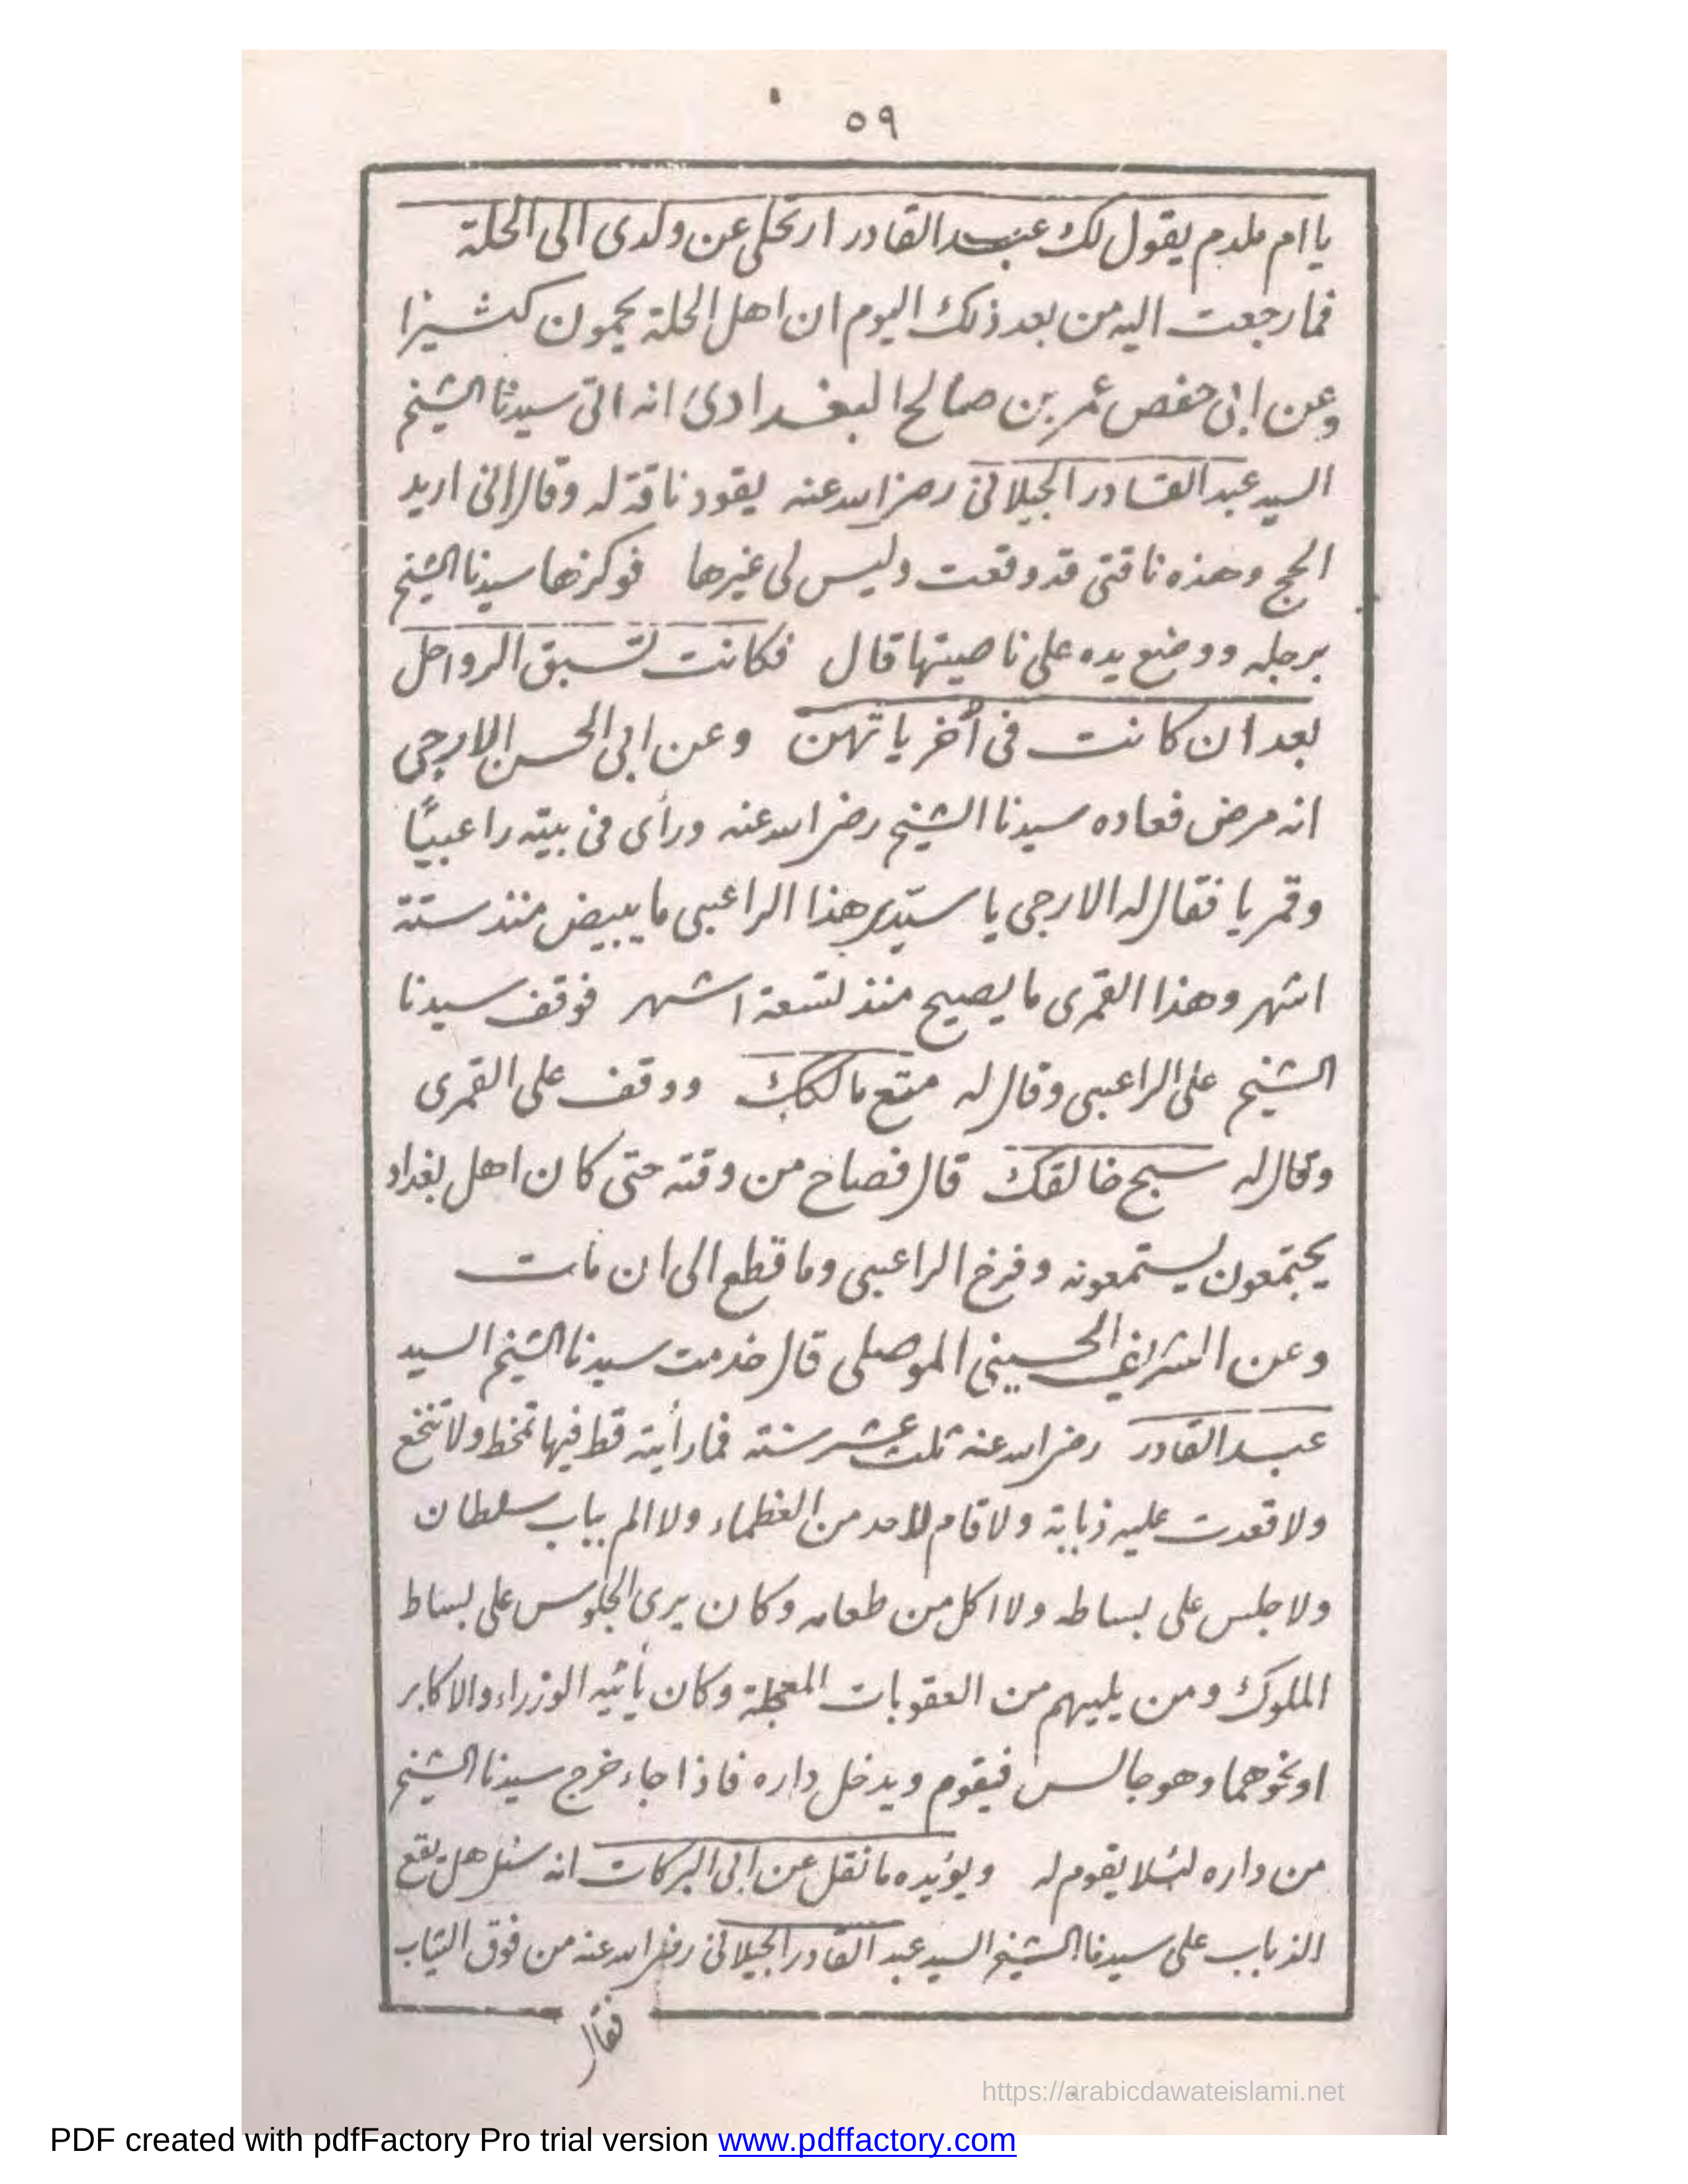 ٥٩
يا ام ملدم يقول لك عبد القادر ارتحلى عن ولدى الى الحلة
فما رجعت اليه من بعد ذلك اليوم ان اهل الحلة يحمون كثيرا
وعن ابى حفص عمر بن صالح البغدادى انه اتى سيدنا الشيخ
السيد عبد القادر الجيلانى رضى الله عنه يقود ناقة له وقال انى اريد
الحج وهذه ناقتى قد وقعت وليس لى غيرها فوكزها سيدنا الشيخ
برجله ووضع يده على ناصيتها قال فكانت تسبق الرواحل
بعد ان كانت فى أخرياتهن وعن ابى الحسن الارجى
انه مرض فعاده سيدنا الشيخ رضى الله عنه ورأى فى بيته راعبيًا
وقمريا فقال له الارجى يا سيّدى هذا الراعبى ما يبيض منذ ستة
اشهر وهذا القمرى ما يصيح منذ تسعة اشهر فوقف سيدنا
الشيخ على الراعبى وقال له متع مالكك ووقف على القمرى
وقال له سبح خالقك قال فصاح من وقته حتى كان اهل بغداد
يجتمعون ليستمعونه وفرخ الراعبى وما قطع الى ان مات
وعن الشريف الحسينى الموصلى قال خدمت سيدنا الشيخ السيد
عبد القادر رضى الله عنه ثلث عشر سنة فما رأيته قط فيها تمخط ولا تنخع
ولا قعدت عليه ذبابة ولا قام لاحد من العظماء ولا الم بباب سلطان
ولا جلس على بساطه ولا اكل من طعامه وكان يرى الجلوس على بساط
الملوك ومن يليهم من العقوبات المعجلة وكان يأتيه الوزراء والاكابر
او نحوهما وهو جالس فيقوم ويدخل داره فاذا جاء خرج سيدنا الشيخ
من داره لئلا يقوم له ويؤيده ما نقل عن ابى البركات انه سئل هل يقع
الذباب على سيدنا الشيخ السيد عبد القادر الجيلانى رضى الله عنه من فوق الثياب
فقال
https://arabicdawateislami.net
PDF created with pdfFactory Pro trial version www.pdffactory.com